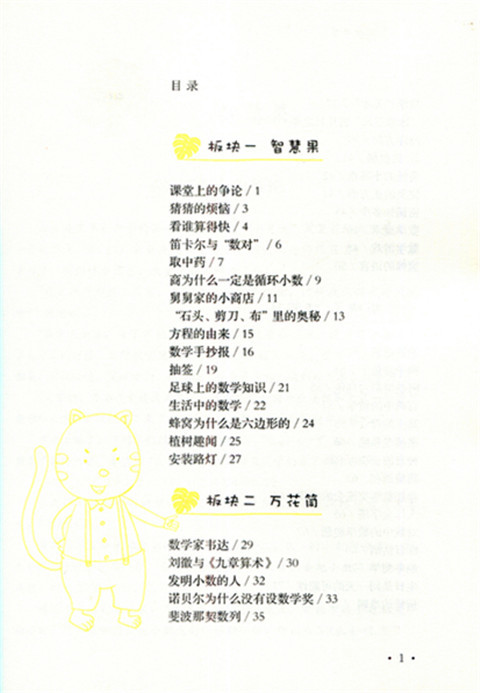 目录
板块一 智慧果
课堂上的争论 / 1
猜猜的烦恼 / 3
看谁算得快 / 4
笛卡尔与“数对” / 6
取中药 / 7
商为什么一定是循环小数 / 9
舅舅家的小商店 / 11
“石头、剪刀、布”里的奥秘 / 13
方程的由来 / 15
数学手抄报 / 16
抽签 / 19
足球上的数学知识 / 21
生活中的数学 / 22
蜂窝为什么是六边形的 / 24
植树趣闻 / 25
安装路灯 / 27
板块二 万花筒
数学家韦达 / 29
刘徽与《九章算术》 / 30
发明小数的人 / 32
诺贝尔为什么没有设数学奖 / 33
斐波那契数列 / 35
• 1 •